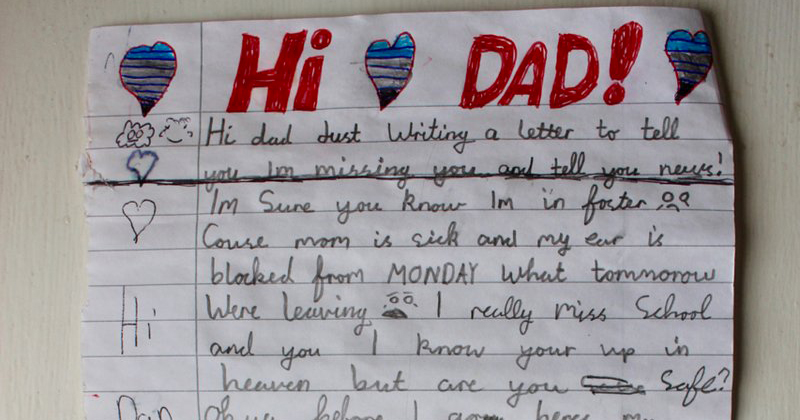 Hi DAD!
Hi dad Just Writing a letter to tell
you Im missing you and tell you news!
Im Sure you know Im in foster
Couse mom is sick and my ear is
blocked from MONDAY What tommorow
Were leaving I really miss School
Hi
and you I know your up in
heaven but are you Safe?
before I